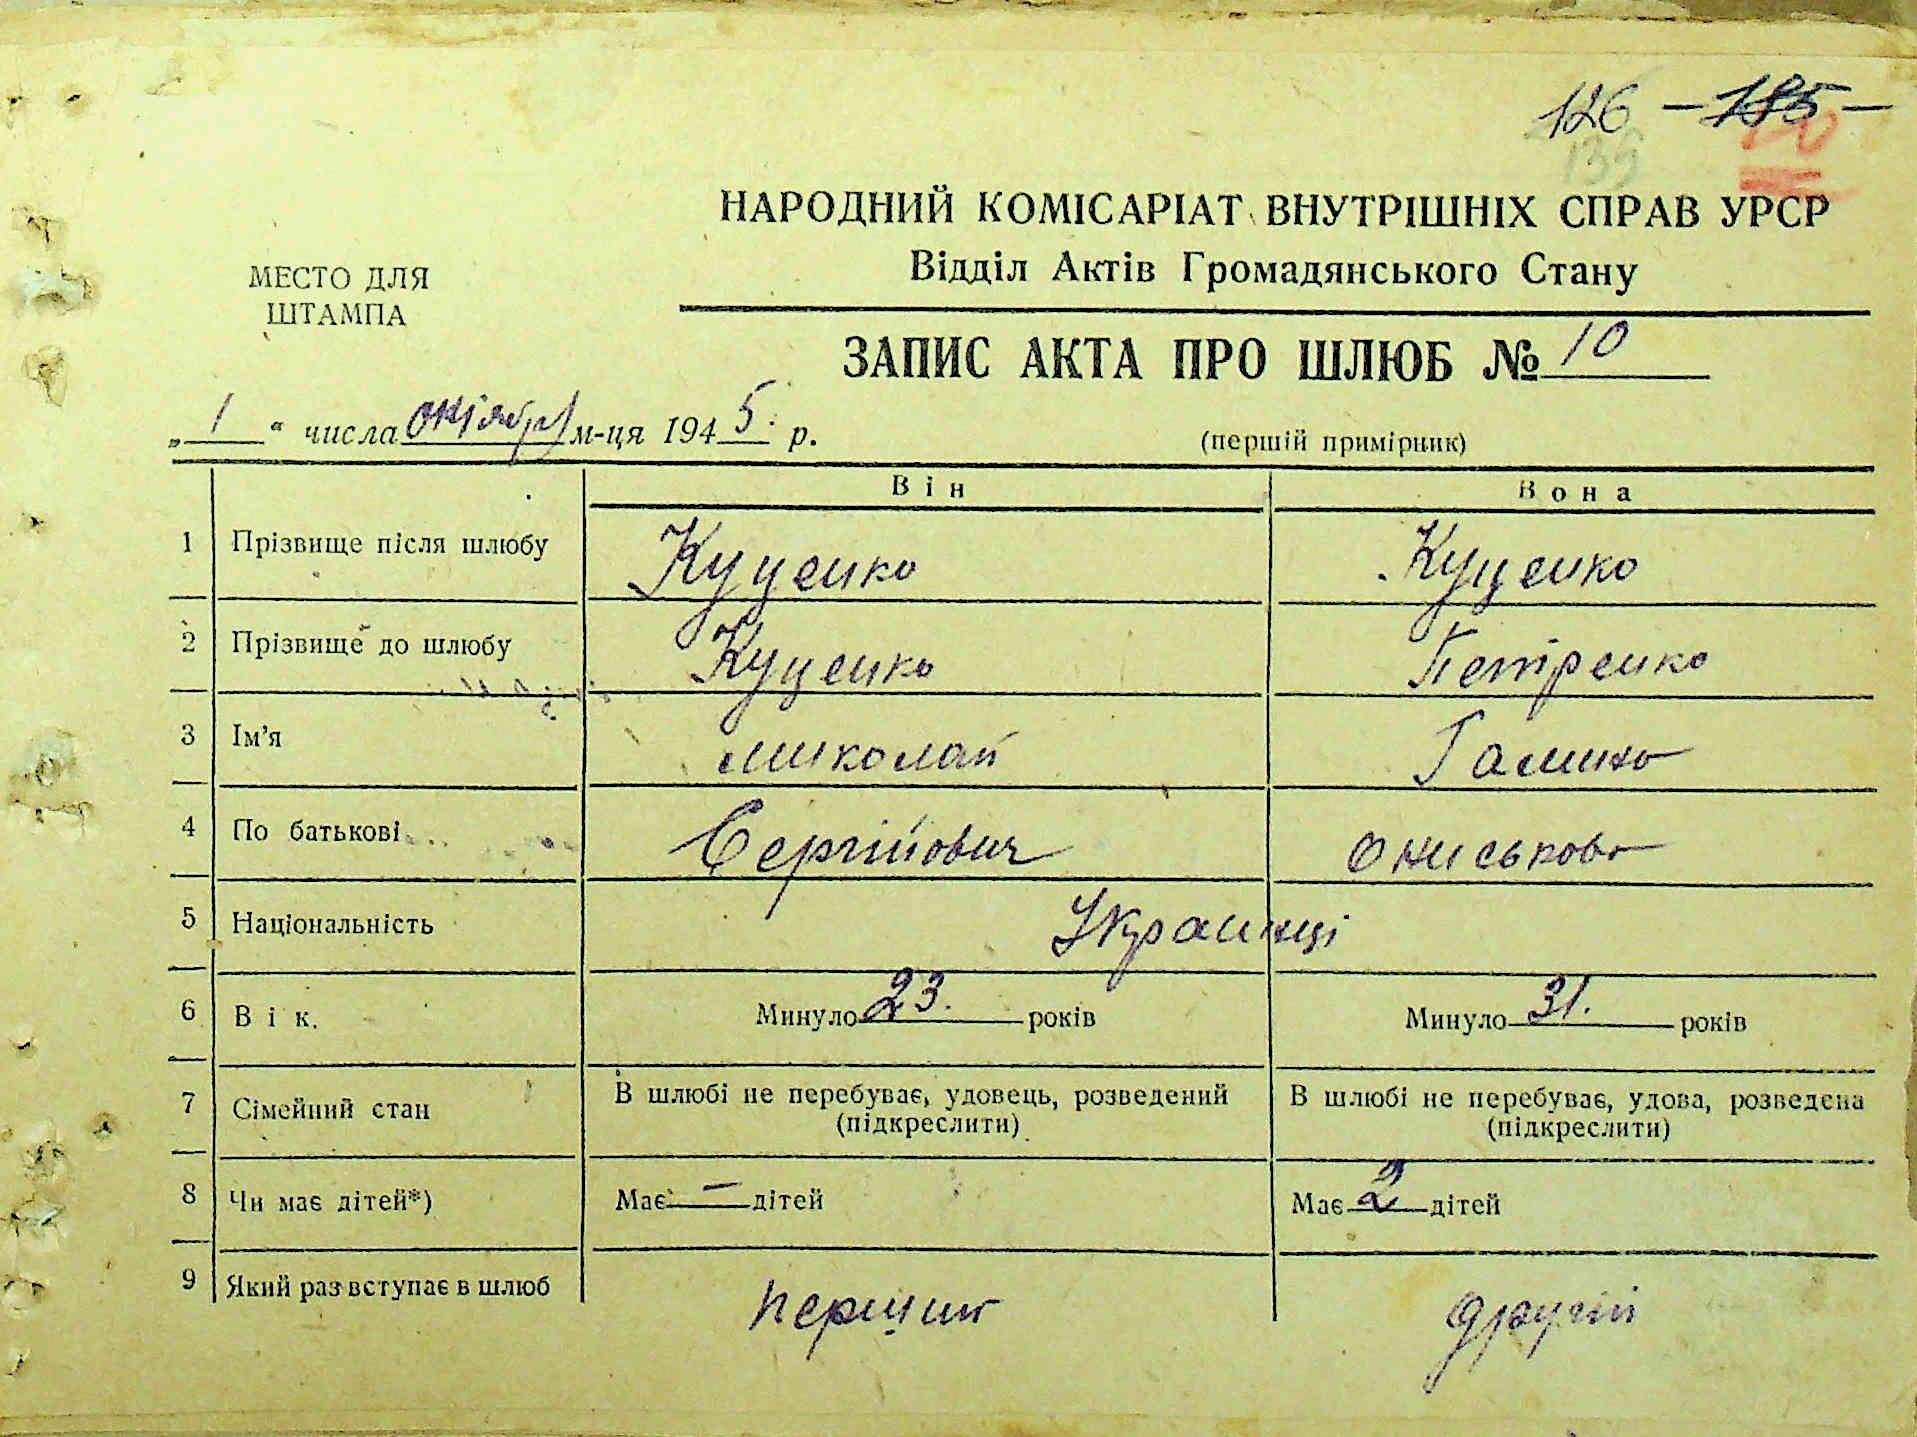 126 – 185 –
139
НАРОДНИЙ КОМІСАРІАТ ВНУТРІШНІХ СПРАВ УРСР
Відділ Актів Громадянського Стану
МЕСТО ДЛЯ
ШТАМПА
ЗАПИС АКТА ПРО ШЛЮБ № 10
„1“ числа октября м-ця 1945 р.
(першій примірник)
Він Вона
1 Прізвище після шлюбу Куценко Куценко
2 Прізвище до шлюбу Куценко Петренко
3 Ім'я Миколай Галина
4 По батькові Сергійович Ониськова
5 Національність Украинці
6 Вік. Минуло 23. років Минуло 31. років
7 Сімейний стан В шлюбі не перебуває, удовець, розведений В шлюбі не перебуває, удова, розведена
(підкреслити) (підкреслити)
8 Чи має дітей*) Має – дітей Має 2 дітей
9 Який раз вступає в шлюб перший другий